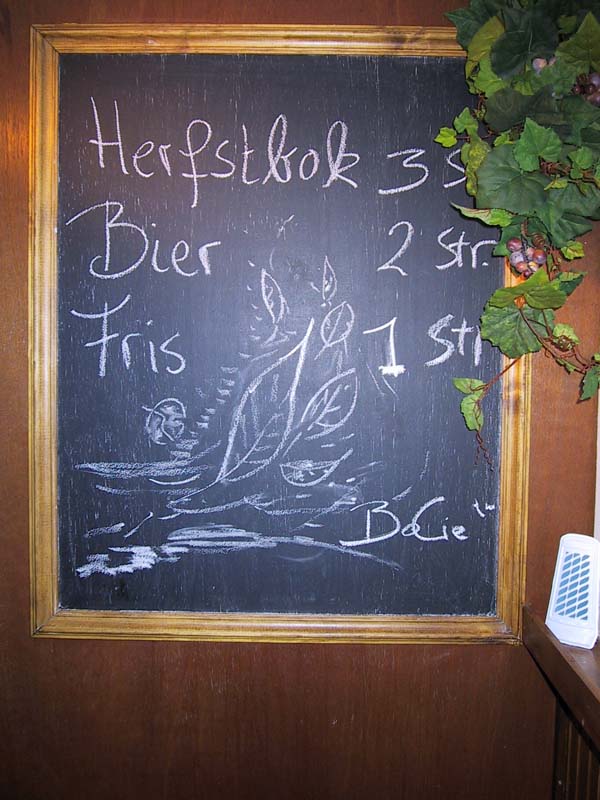 Herfstbok 3 S
Bier 2 Str.
Fris 1 Str
BaCie